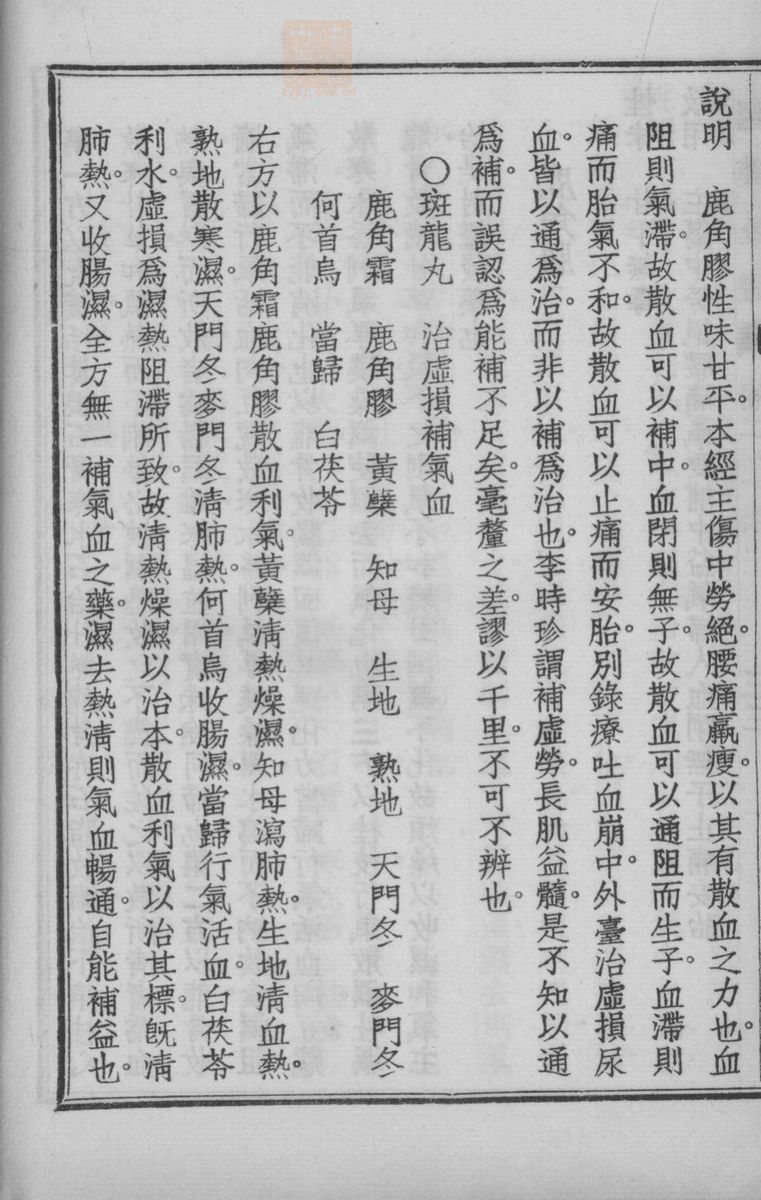 說明　鹿角膠性味甘平。本經主傷中勞絕。腰痛羸瘦。以其有散血之力也。血
阻則氣滯。故散血可以補中。血閉則無子。故散血可以通阻而生子。血滯則
痛而胎氣不和。故散血可以止痛而安胎。別錄療吐血崩中。外臺治虛損尿
血。皆以通爲治。而非以補爲治也。李時珍謂補虛勞。長肌益髓。是不知以通
爲補。而誤認爲能補不足矣。毫釐之差。謬以千里。不可不辨也。
○斑龍丸　治虛損補氣血
鹿角霜　鹿角膠　黃蘗　知母　生地　熟地　天門冬　麥門冬
何首烏　當歸　白茯苓
右方以鹿角霜鹿角膠散血利氣。黃蘗淸熱燥濕。知母瀉肺熱。生地淸血熱。
熟地散寒濕。天門冬麥門冬淸肺熱。何首烏收腸濕。當歸行氣活血。白茯苓
利水。虛損爲濕熱阻滯所致。故淸熱燥濕以治本。散血利氣以治其標。旣淸
肺熱。又收腸濕。全方無一補氣血之藥。濕去熱淸。則氣血暢通。自能補益也。